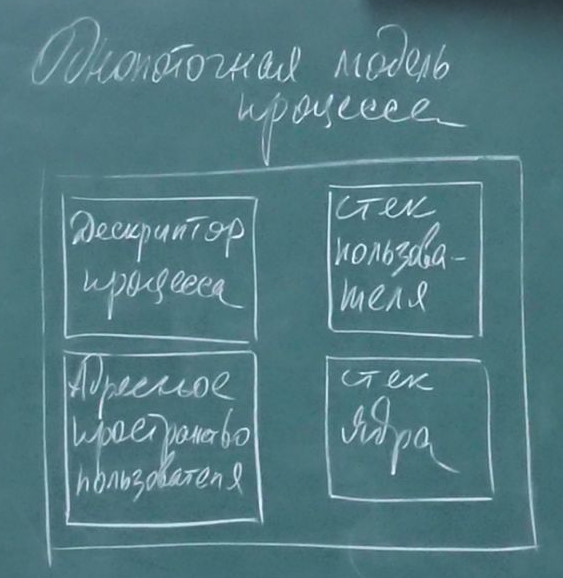 Однопоточная модель
процесса
Дескриптор
процесса
стек
пользова-
теля
Адресное
пространство
пользователя
стек
ядра